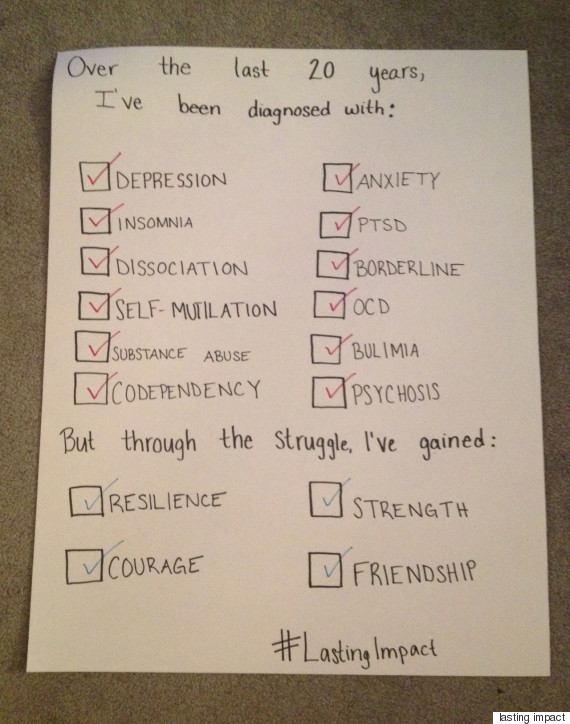 Over the last 20 years,
I've been diagnosed with:
DEPRESSION ANXIETY
INSOMNIA PTSD
DISSOCIATION BORDERLINE
SELF-MUTILATION OCD
SUBSTANCE ABUSE BULIMIA
CODEPENDENCY PSYCHOSIS
But through the struggle, I've gained:
RESILIENCE STRENGTH
COURAGE FRIENDSHIP
#LastingImpact
lasting impact